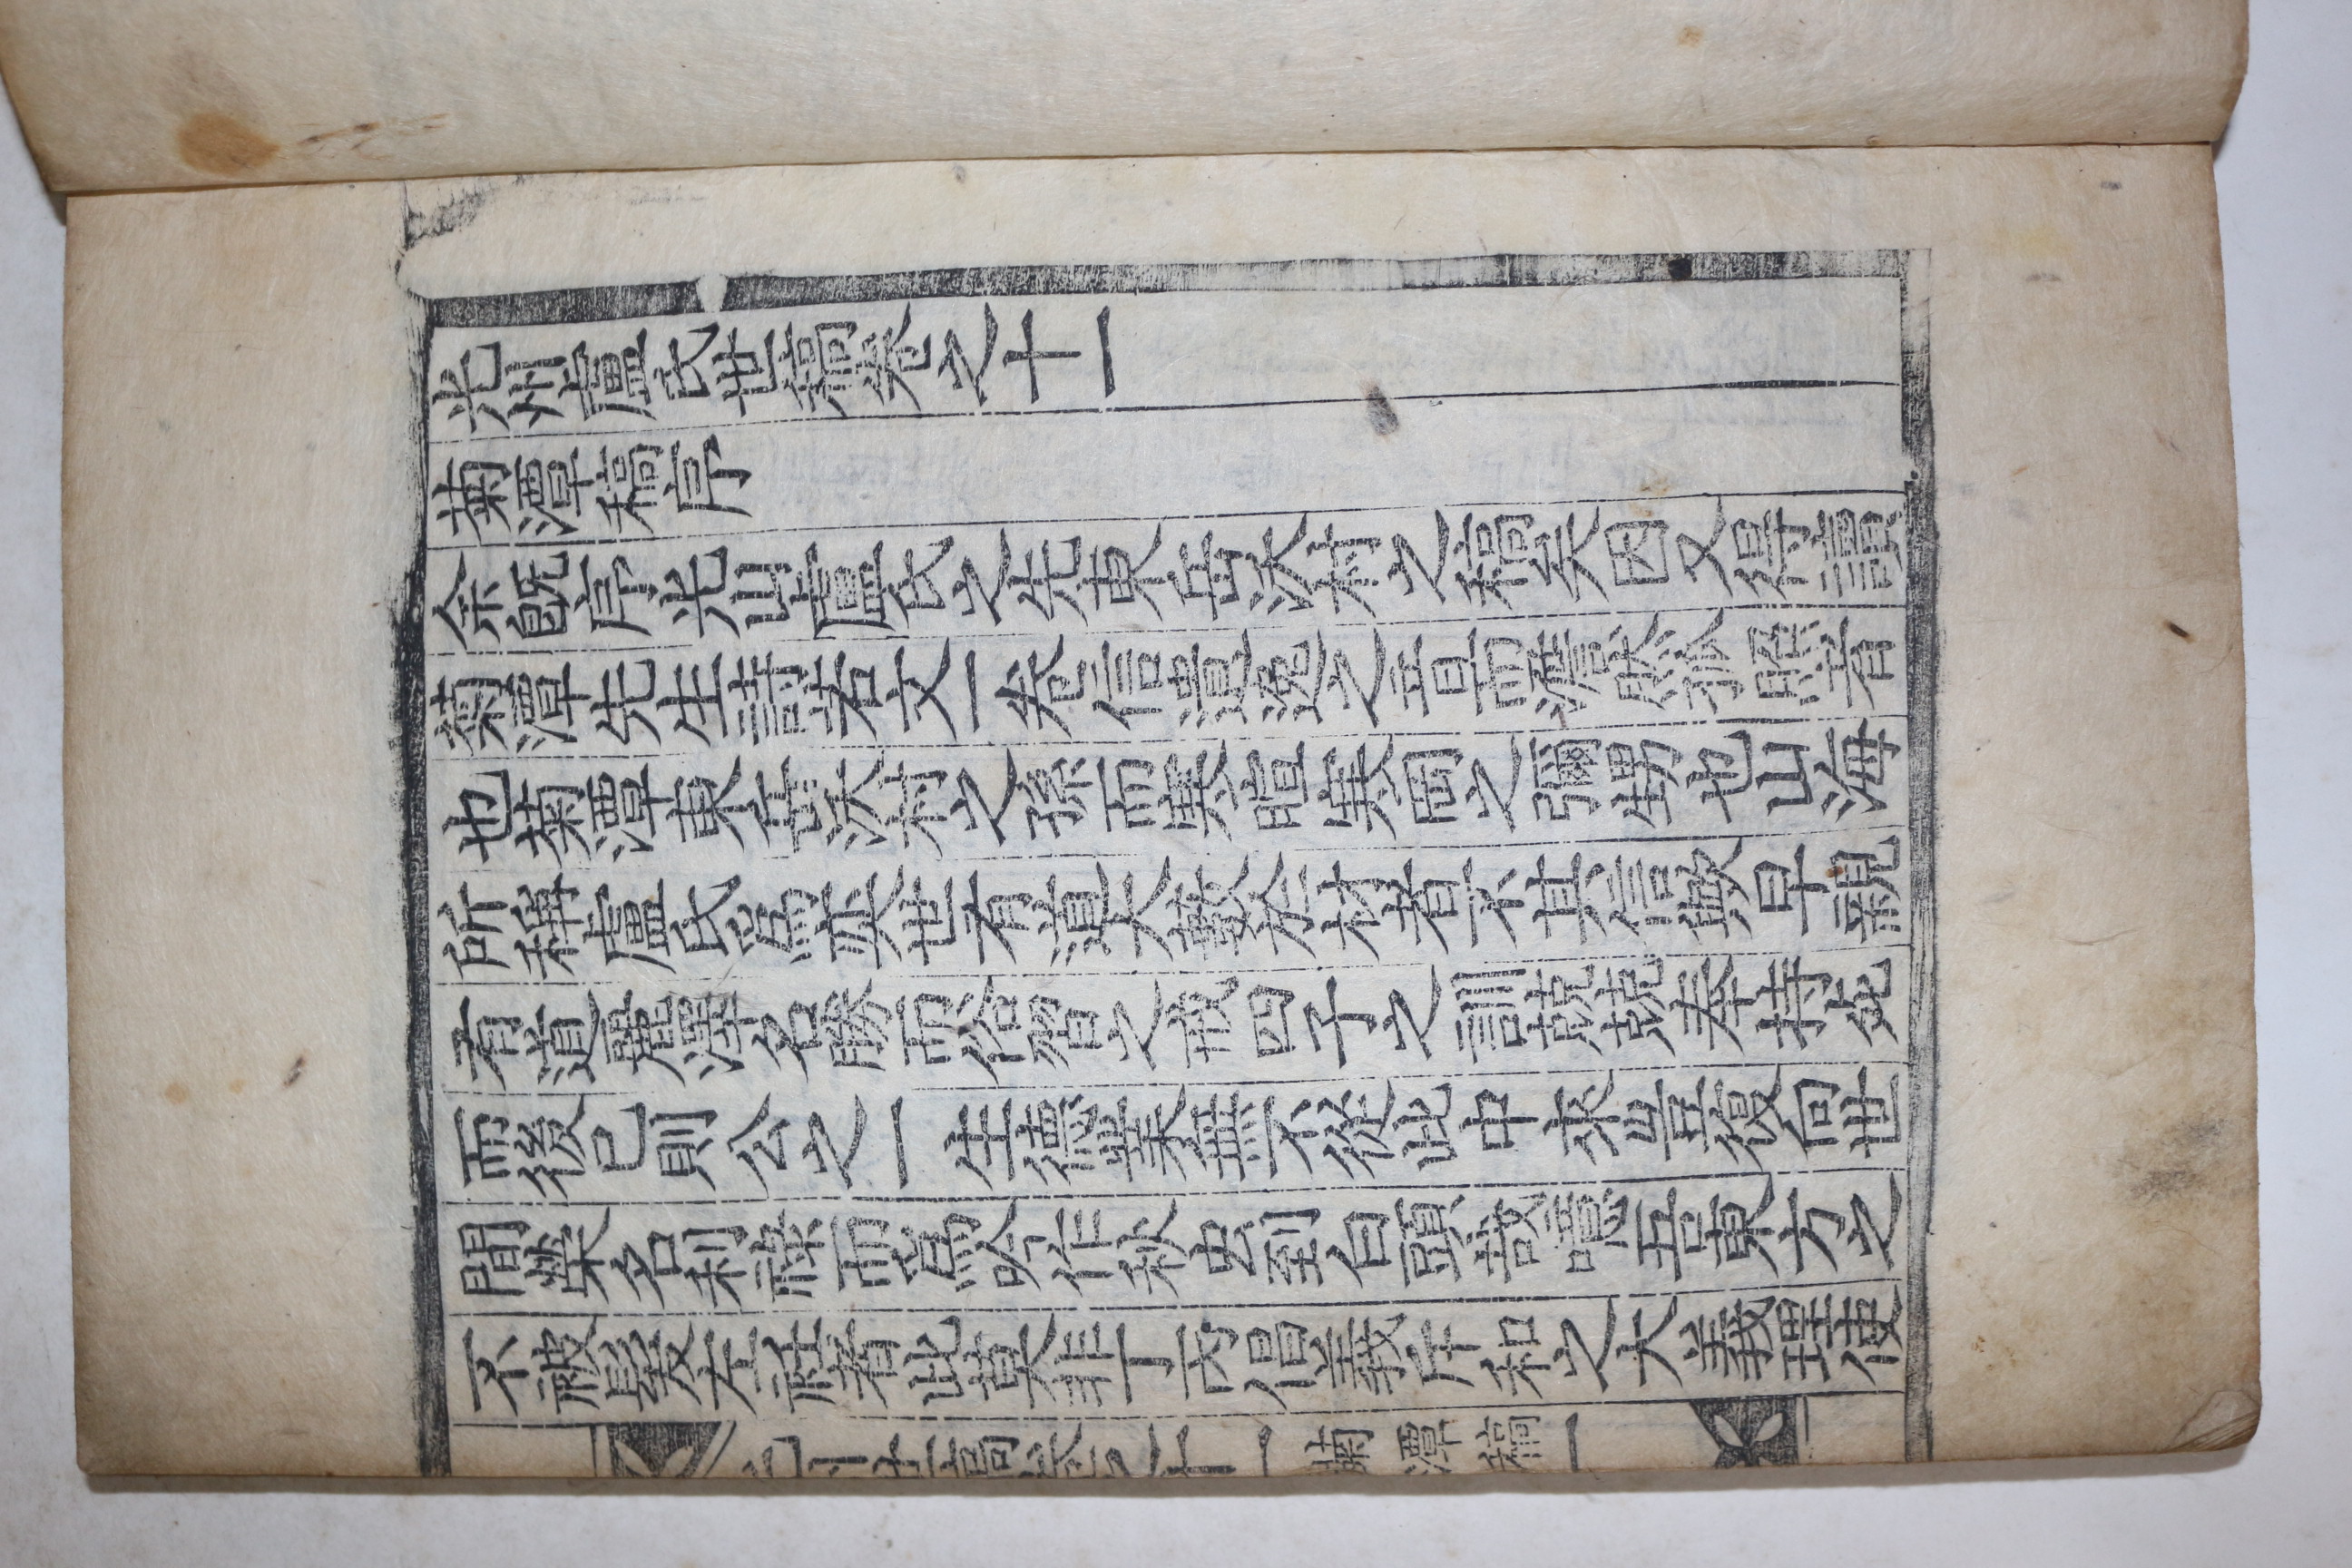 光州盧氏世稿卷之十一
菊潭稿序
余旣序光山盧氏之先東岳沃村之稿矣因又得讀
菊潭先生詩若文一卷信遺逸之音而澹然孤照者
也菊潭東岳沃村之孫而寒暄寒岡之彌甥也山海
所稱盧氏爲奕世有道大藪於材者不其信歟早親
有道麗澤名勝而俗習之戒四子之訓兢兢奉持死
而後已則公之一生德業無不從此中來豈復向世
間榮名利祿而爲吟作秋虫到白頭哉噫吾東方之
不被髮左衽者此莫非丁丙倡義斥和之大義理使
光州世稿卷之十一 菊潭稿 一